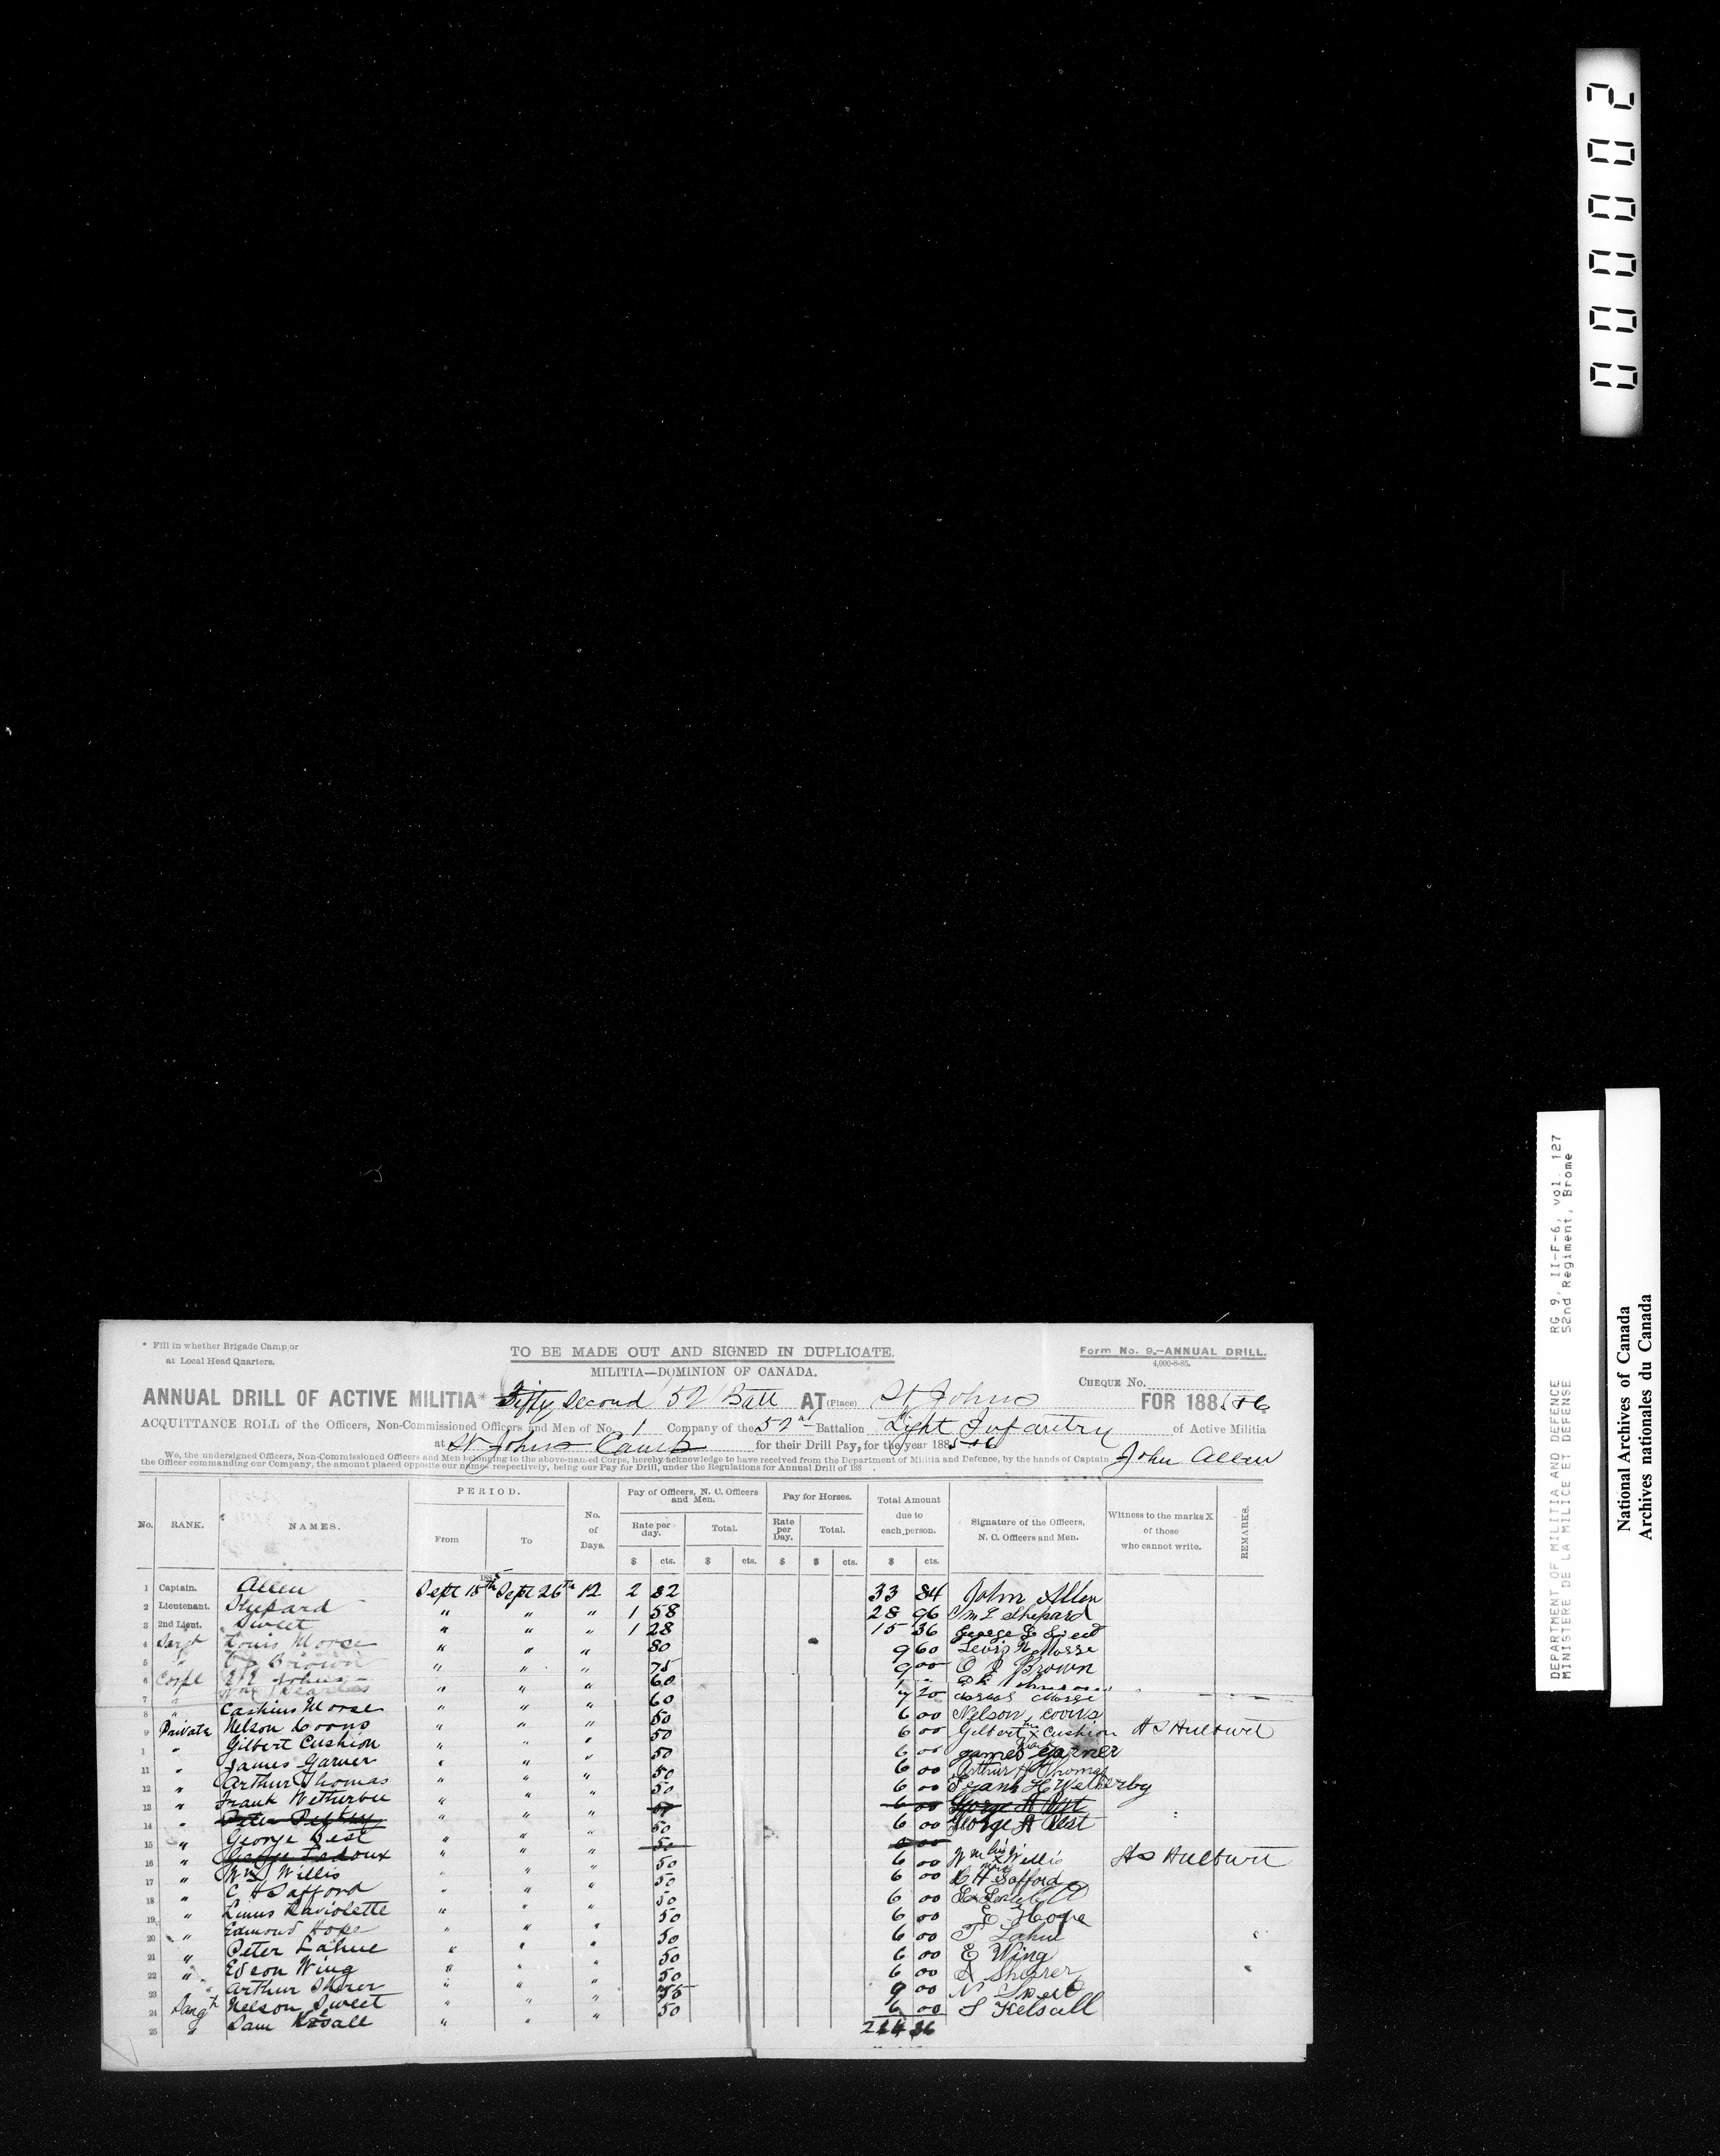 00002
DEPARTMENT OF MILITIA AND DEFENCE RG 9, II-F-6, vol. 127
MINISTERE DE LA MILICE ET DEFENSE 52nd Regiment, Brome
National Archives of Canada
Archives nationales du Canada
* Fill in whether Brigade Camp or
at Local Head Quarters.
TO BE MADE OUT AND SIGNED IN DUPLICATE.
Form No. 9.—ANNUAL DRILL.
4,000-8-85.
MILITIA—DOMINION OF CANADA.
CHEQUE No.
ANNUAL DRILL OF ACTIVE MILITIA* Fifty Second 52 Batt AT (Place) St Johns FOR 1885+6
ACQUITTANCE ROLL of the Officers, Non-Commissioned Officers and Men of No. 1 Company of the 52nd Battalion Light Infantry of Active Militia
at St Johns Camp for their Drill Pay, for the year 1885+6
We, the undersigned Officers, Non-Commissioned Officers and Men belonging to the above-named Corps, hereby acknowledge to have received from the Department of Militia and Defence, by the hands of Captain John Allen
the Officer commanding our Company, the amount placed opposite our names respectively, being our Pay for Drill, under the Regulations for Annual Drill of 188 .
No. RANK. NAMES. PERIOD. From To No. of Days. Pay of Officers, N. C. Officers and Men. Rate per day. Total. Pay for Horses. Rate per Day. Total. Total Amount due to each person. Signature of the Officers, N. C. Officers and Men. Witness to the marks X of those who cannot write. REMARKS.
$ cts. $ cts. $ $ cts. $ cts.
1 Captain. Allen Sept 15th Sept 26th 12 2 82 33 84 John Allen
2 Lieutenant. Shepard " " " 1 58 28 96 Shepard
3 2nd Lieut. Sweet " " " 1 28 15 36 George
4 Sargt Louis Morse " " " 80 9 60 Morse
5 " Brown " " " 75 9 00 O J Brown
6 Corpl Johns " " " 60
7 " 60 7 20
8 " Cashius Morse 50 6 00 Nelson Coons
9 Private Nelson Coons " " " 50 6 00 Gilbert his X mark Cushion H S Hulburt
1 " Gilbert Cushion " " " 50 6 00 James Garner
11 " James Garner " " " 50 6 00 Arthur Thomas
12 " Arthur Thomas " " " 50 6 00 Frank H Wetherby
13 " Frank Wetherbee " " " 50 6 00 George A Best
14 " Peter " " " 50 6 00 George A Best
15 " George Best " " " 50 6 00
16 " George Ledoux " " " 50 6 00 Wm his X mark Willis H S Hulburt
17 " Wm Willis " " " 50 6 00 C H Safford
18 " C H Safford " " " 50 6 00
19 " Linus Laviolette " " " 50 6 00 E Hope
20 " Edmond Hope " " " 50 6 00 P Lahue
21 " Peter Lahue " " " 50 6 00 E Wing
22 " Edson Wing " " " 50 6 00 A Sherer
23 " Arthur Sherer " " " 75 9 00 N Sweet
24 Sargt Nelson Sweet " " " 50 6 00 S Kelsall
25 " Sam " " "